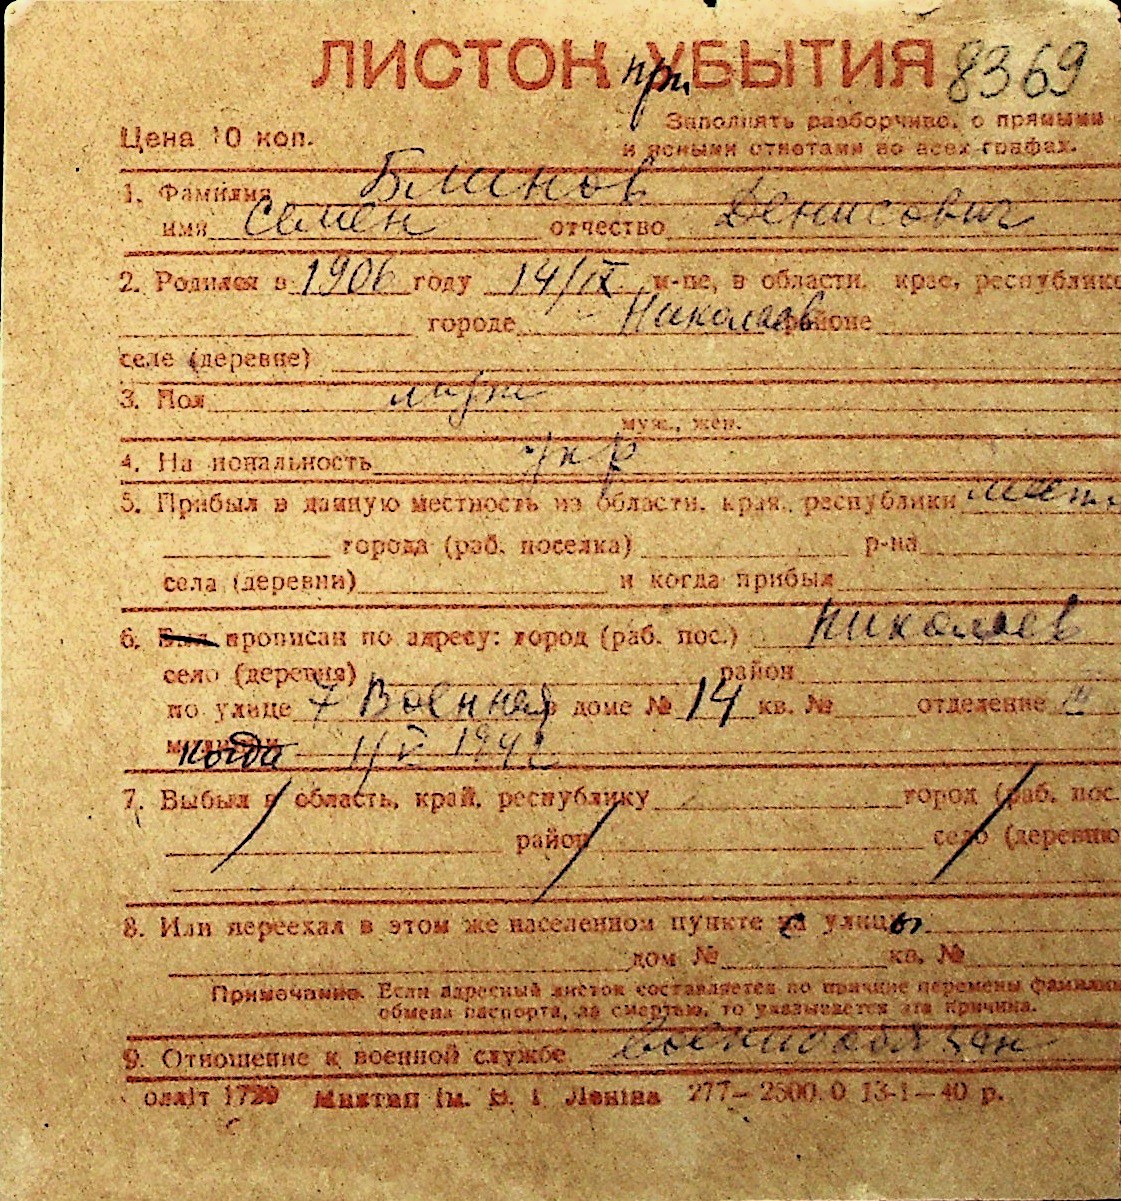 ЛИСТОК при УБЫТИЯ 8369
Цена 10 коп.
Заполнять разборчиво, о прямыми
и ясными ответами во всех графах.
1. Фамилия Блинов
имя Семен отчество Денисович
2. Родился в 1906 году 14/IX м-це, в области, крае, республике
городе Николаев районе
селе (деревне)
3. Пол муж
муж., жен.
4. На иональность укр
5. Прибыл в данную местность из области, края, республики
города (раб. поселка) р-на
села (деревни) и когда прибыл
6. Был прописан по адресу: город (раб. пос.) Николаев
село (деревня) район
по улице 7 Военная в доме № 14 кв. № отделение
когда 1/V 1942
7. Выбыл в область, край, республику город (раб. пос.
район село (деревню
8. Или переехал в этом же населенном пункте с улицы
дом № кв. №
Примечание. Если адресный листок составляется по причине перемены фамилии
обмена паспорта, за смертью, то указывается эта причина.
9. Отношение к военной службе военнообязан
олліт 1729 Миктип ім. В. І Леніна 277—2500.0 13-1—40 р.